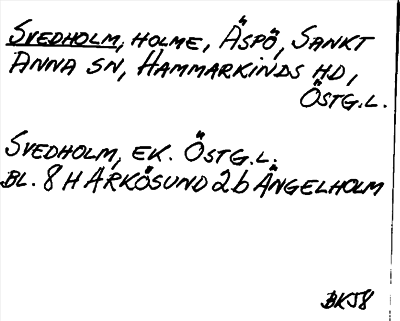 SVEDHOLM, HOLME, ÄSPÖ, SANKT
ANNA SN, HAMMARKINDS HD,
ÖSTG.L.
SVEDHOLM, EK. ÖSTG.L.
BL. 8 H ARKÖSUND 2b ÄNGELHOLM
BKJ8